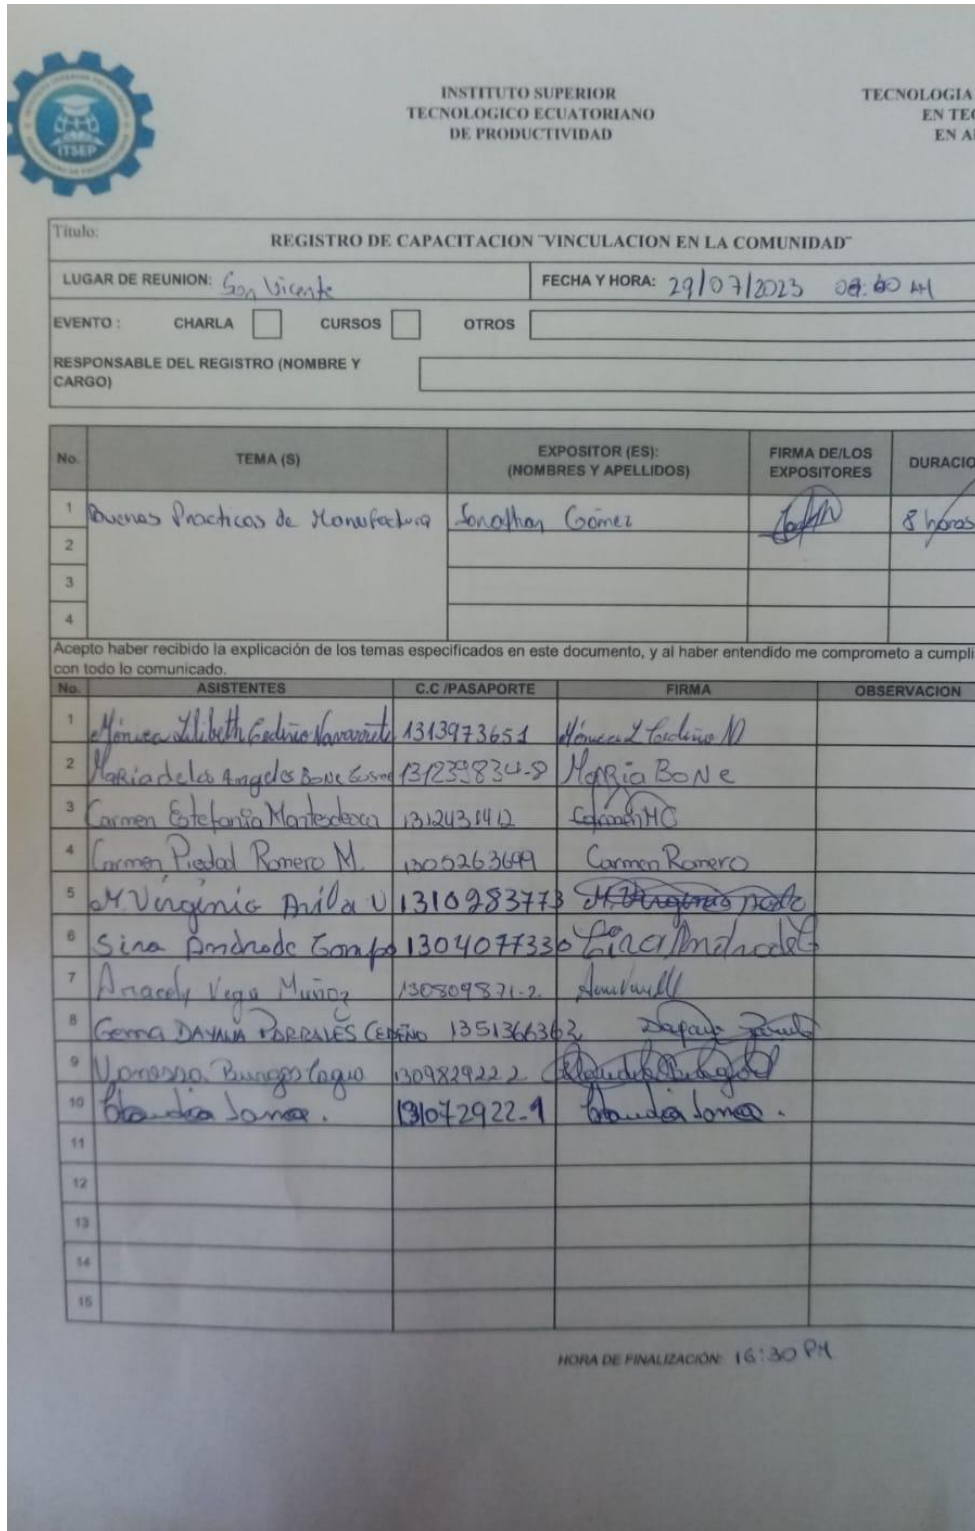 INSTITUTO SUPERIOR
TECNOLOGICO ECUATORIANO
DE PRODUCTIVIDAD
TECNOLOGIA
EN TEC
EN A
ITSEP
Título:
REGISTRO DE CAPACITACION ¨VINCULACION EN LA COMUNIDAD¨
LUGAR DE REUNION: San Vicente FECHA Y HORA: 29/07/2023 AM
EVENTO : CHARLA CURSOS OTROS
RESPONSABLE DEL REGISTRO (NOMBRE Y
CARGO)
No. TEMA (S) EXPOSITOR (ES): (NOMBRES Y APELLIDOS) FIRMA DE/LOS EXPOSITORES DURACIO
1 Buenas Practicas de Manufactura Jonathan Gómez 8 horas
2
3
4
Acepto haber recibido la explicación de los temas especificados en este documento, y al haber entendido me comprometo a cumpli
con todo lo comunicado.
No. ASISTENTES C.C /PASAPORTE FIRMA OBSERVACION
1 Mónica Lilibeth Cedeño Navarrete 1313973651 Mónica L Cedeño N
2 Maria de los Angeles Bone 131239834-8 Maria Bone
3 Carmen Estefania Montesdeoca 1312431412 Carmen MC
4 Carmen Piedad Romero M. 1305263699 Carmen Romero
5 M. Virginia Avila U 1310283773
6 Sira Andrade 1304077330 Sira Andrade
7 Aracely Vega Muñoz 130809871-2
8 Gema DAYANA PARRALES CEDEÑO 1351366362
9 Vanessa Burgos 130982922 2
10 Claudia 131072922-1 Claudia
11
12
13
14
15
HORA DE FINALIZACIÓN: 16:30 PM